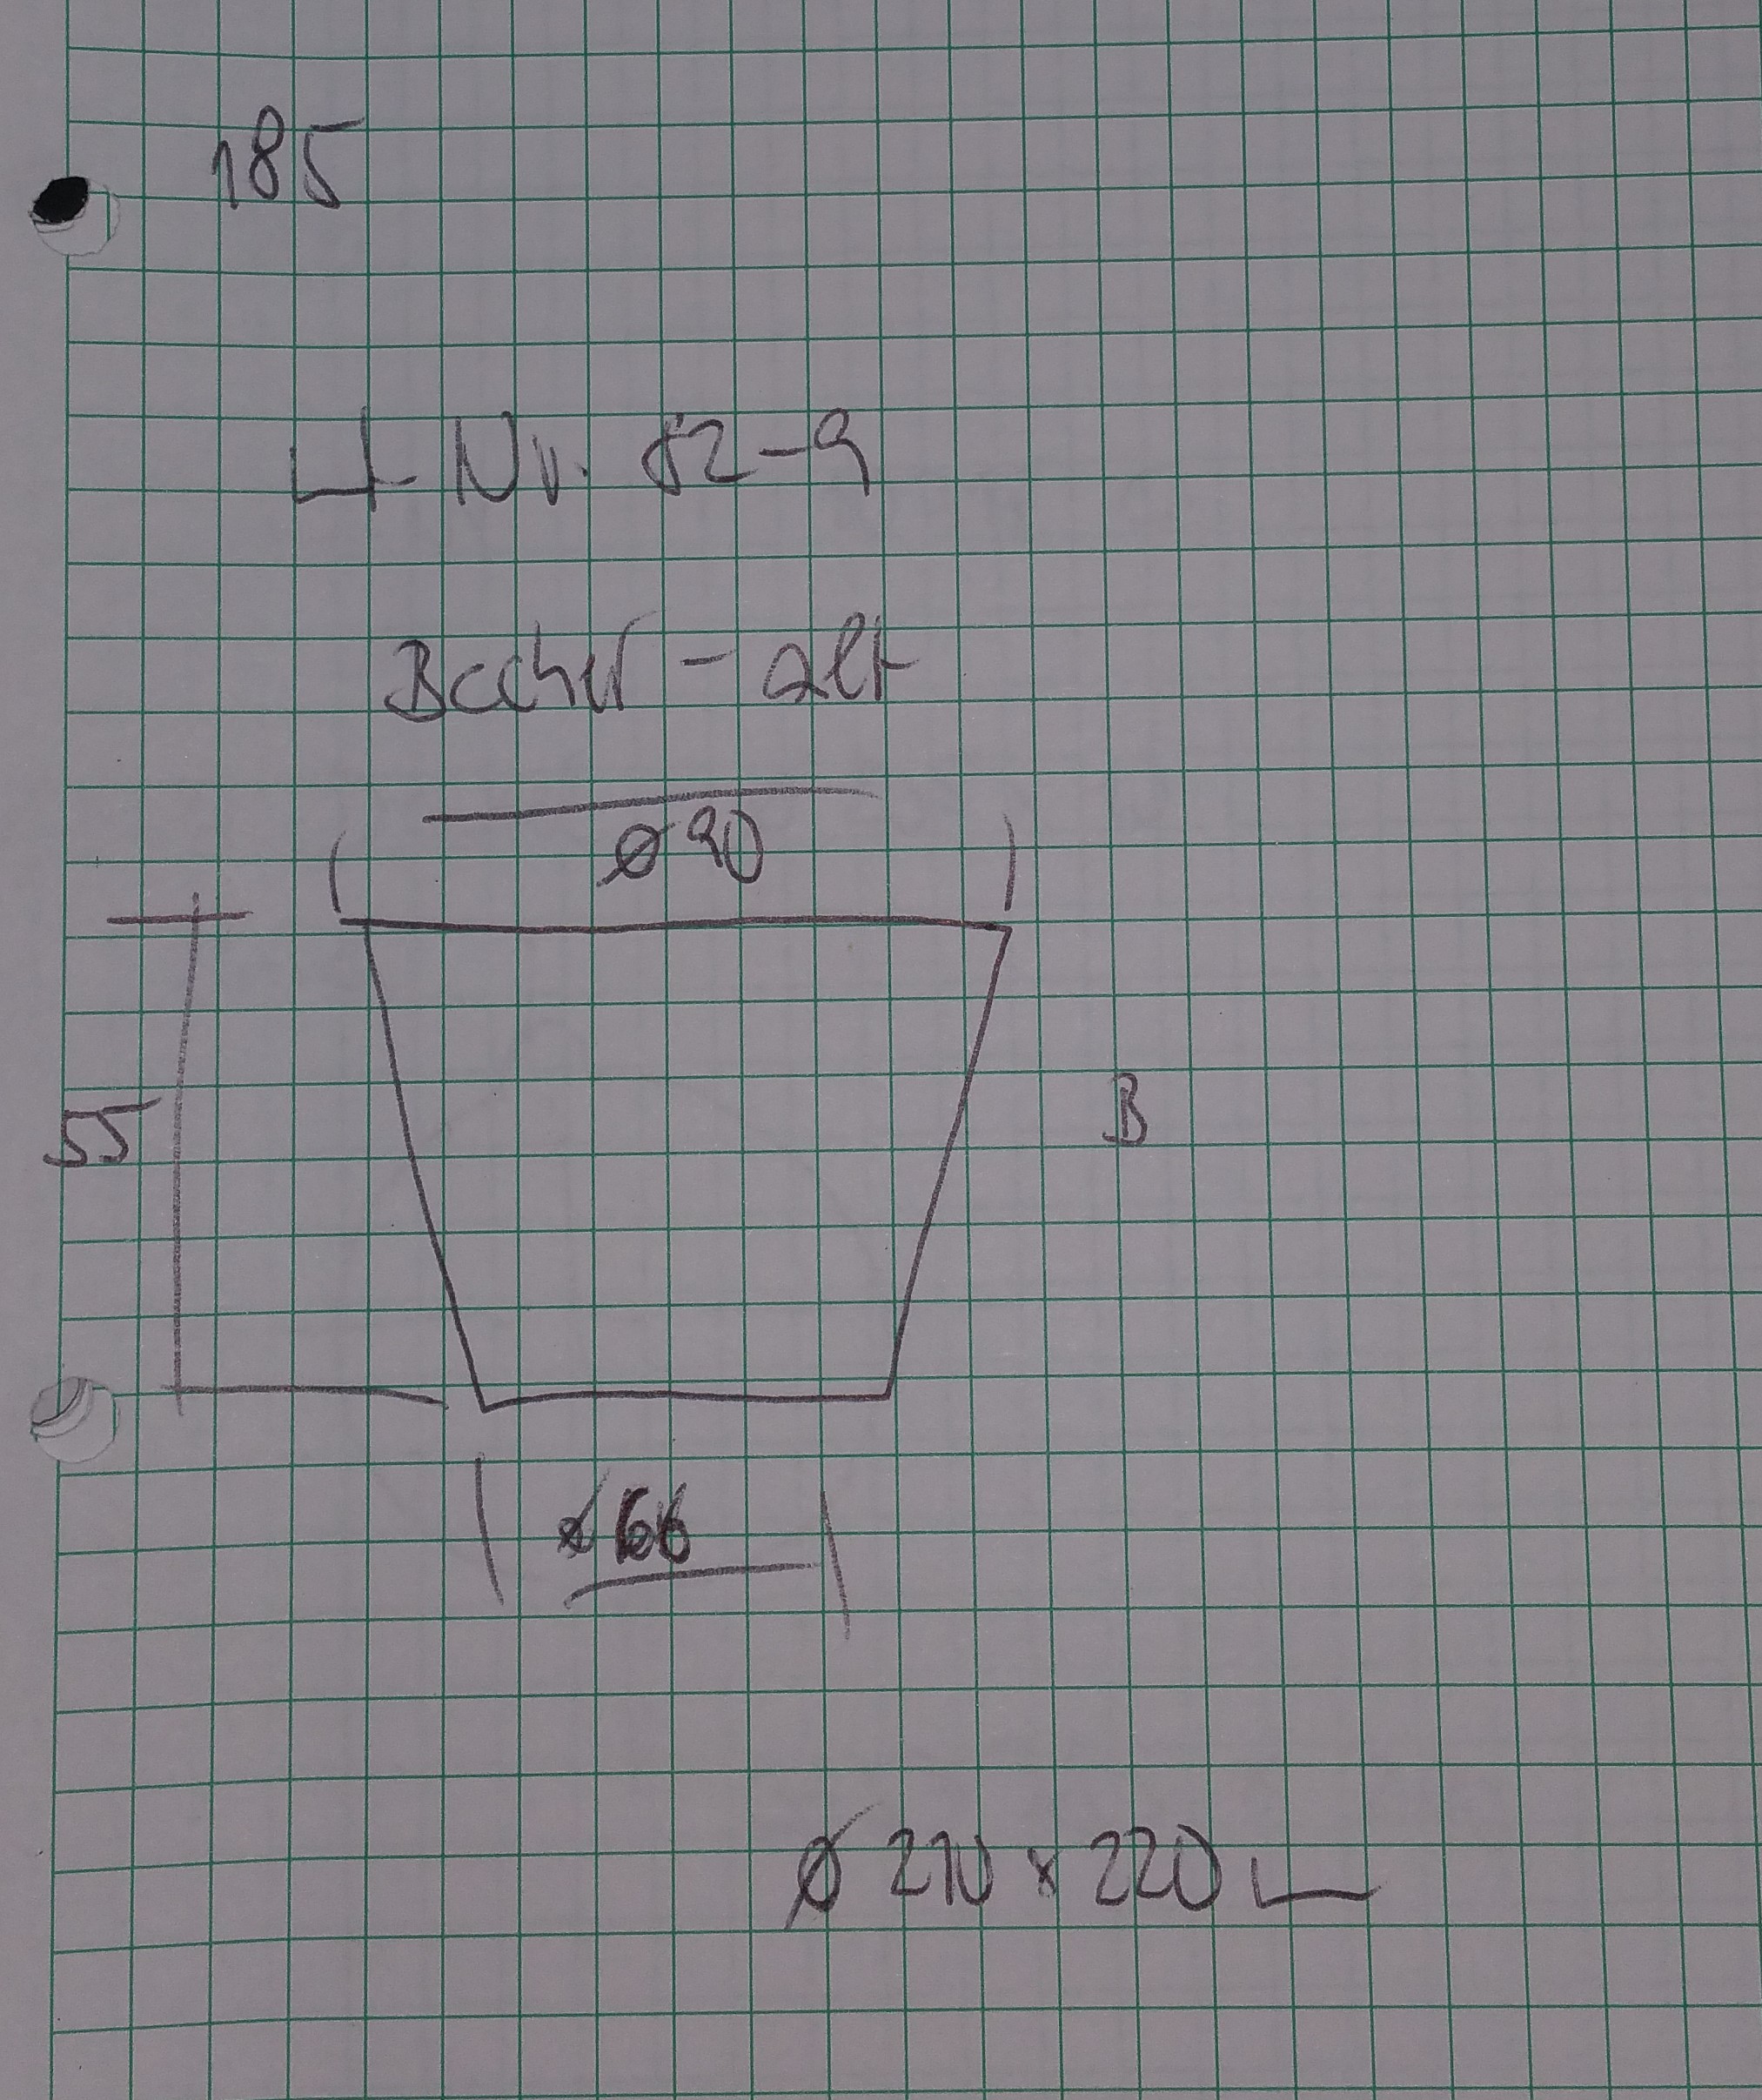 185
4-Nr. 82-9
Becher - alt
ø 90
55
B
ø 66
ø 210 x 220 L